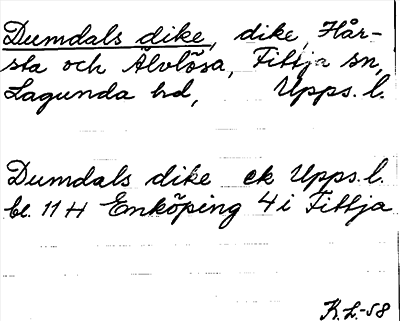 Dumdals dike, dike, Hår-
sta och Älvlösa, Fittja sn,
Lagunda hd, Upps. l.
Dumdals dike ek Upps. l.
bl. 11 H Enköping 4 i Fittja
K.L.-58